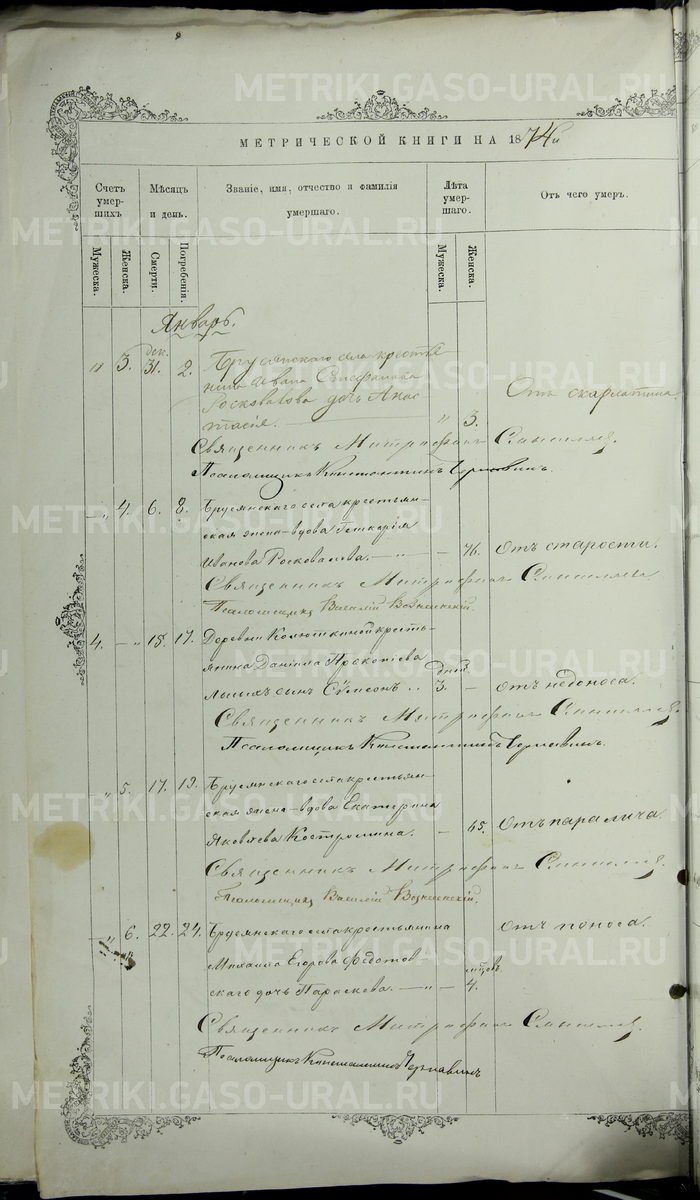 МЕТРИЧЕСКОЙ КНИГИ НА 1874й
Счетъ умер-шихъ
Мѣсяцъ и день.
Званіе, имя, отчество и фамилія умершаго.
Лѣта умер-шаго.
Отъ чего умеръ.
Мужеска.
Женска.
Смерти.
Погребенія.
Мужеска.
Женска.
Январь.
„ 3. дек. 31. 2. Брусянскаго села крестья-
нина Ивана Стефанова
Росковалова дочь Анас-
тасія. — „ 3. Отъ скарлатины
Священникъ Митрофанъ
Псаломщикъ Константинъ Чернавинъ.
„ 4. 6. 8. Брусянскаго села крестьян-
ская жена-вдова
Иванова Росковалова. — „ — 76. Отъ старости.
Священникъ Митрофанъ
Псаломщикъ Василій Вознесенскій.
4. — „ 15. 17. Деревни Колюткиной кресть-
янина Даніила Прокопіева
Лысыхъ сынъ Сѵмеонъ „ дней 3. — отъ недоноса.
Священникъ Митрофанъ
Псаломщикъ Константинъ Чернавинъ.
„ 5. 17. 19. Брусянскаго села крестьян-
ская жена-вдова Екатерина
Яковлева Костромина. — 65. Отъ паралича
Священникъ Митрофанъ
Псаломщикъ Василій Вознесенскій.
„ 6. 22. 24. Брусянскаго села крестьянина Отъ поноса.
Михаила Егорова Федотов-
скаго дочь Параскева. — „ — мѣсяц. 4.
Священникъ Митрофанъ
Псаломщикъ Константинъ Чернавинъ
METRIKI.GASO-URAL.RU